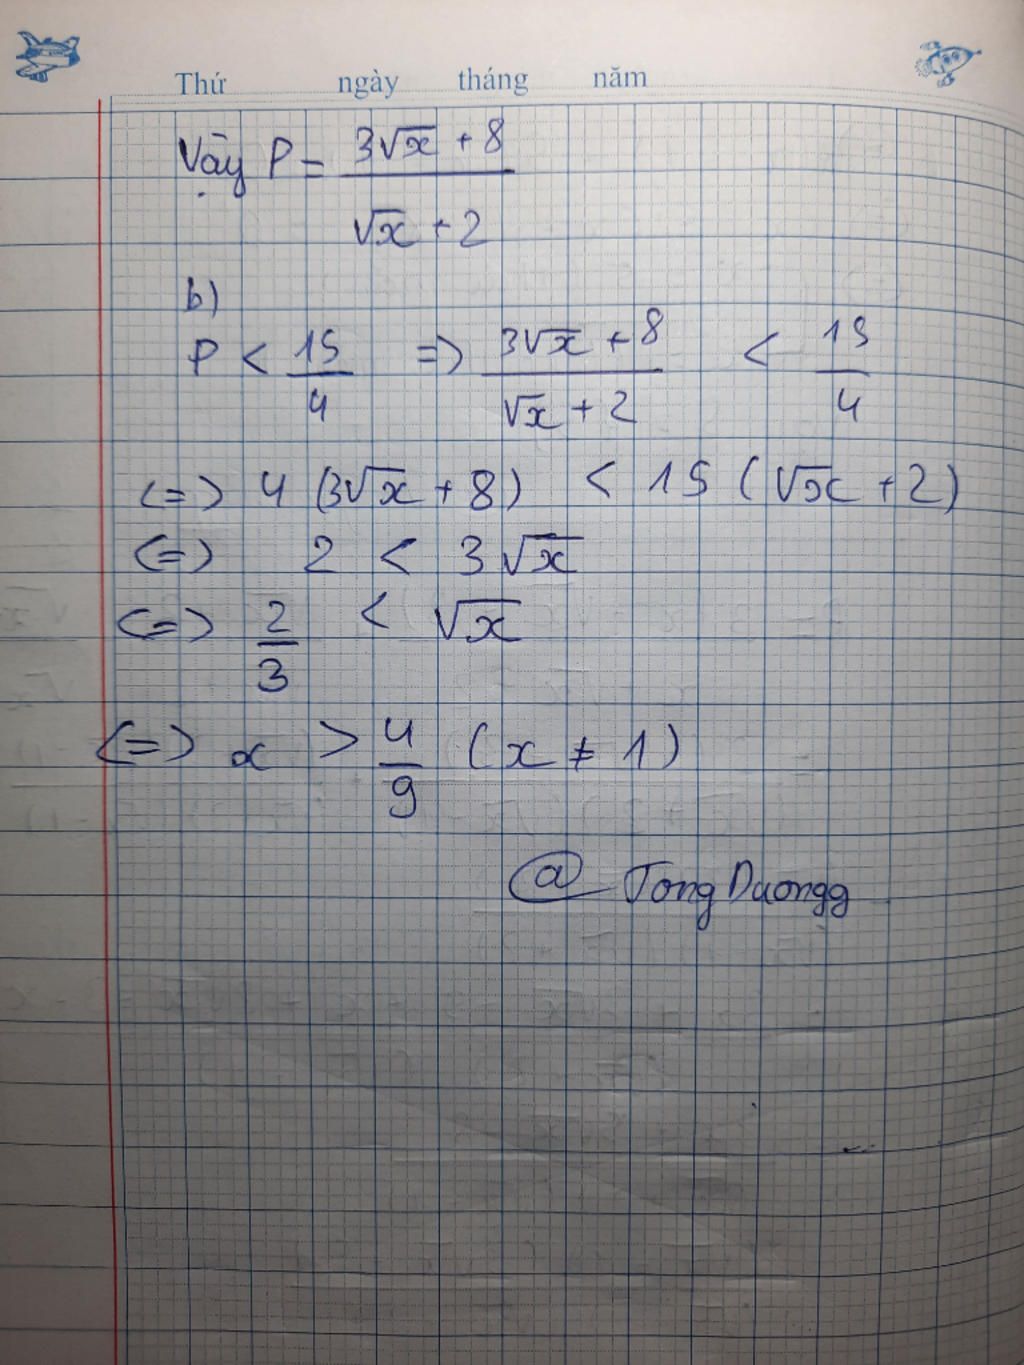 Thứ ngày tháng năm
Vậy P = \frac{3\sqrt{x} + 8}{\sqrt{x} + 2}
b)
P < \frac{15}{4} => \frac{3\sqrt{x} + 8}{\sqrt{x} + 2} < \frac{15}{4}
(=) 4 (3\sqrt{x} + 8) < 15 (\sqrt{x} + 2)
(=) 2 < 3\sqrt{x}
(=) \frac{2}{3} < \sqrt{x}
(=) x > \frac{4}{9} (x ≠ 1)
@ Tong Duongg